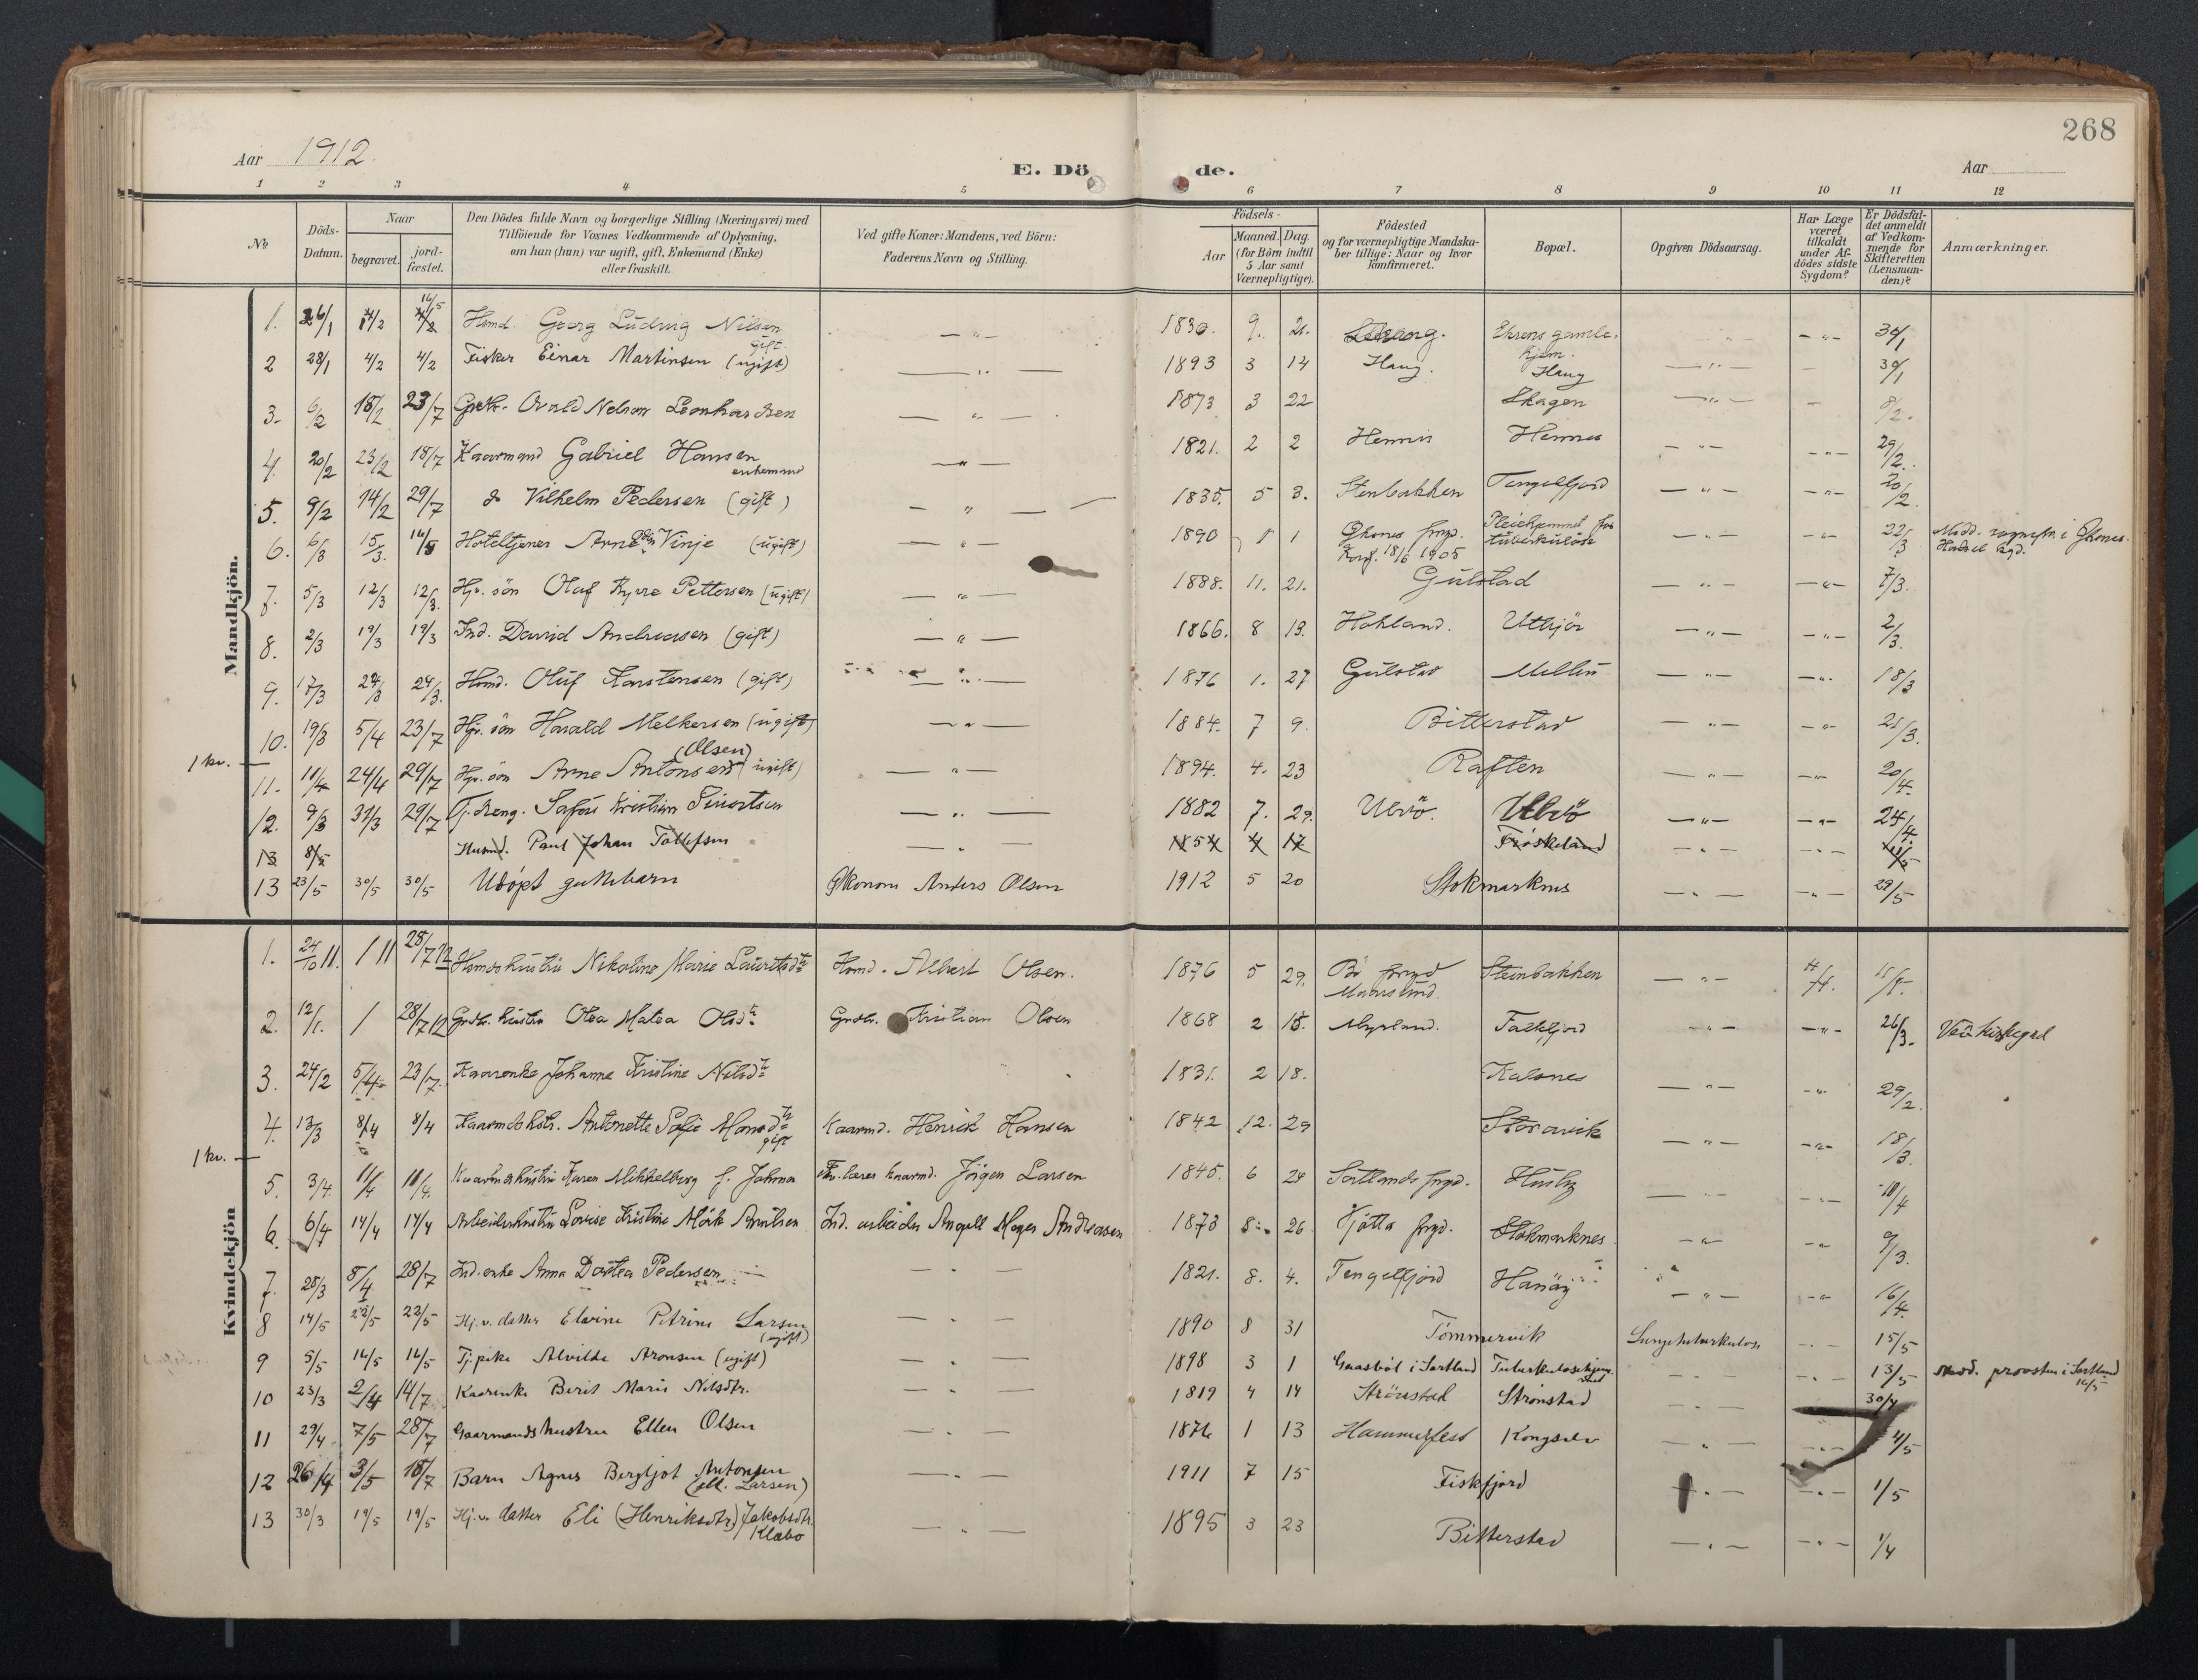 268
Aar 1912.
E. Dö de.
Aar
1 2 3 4 5 6 7 8 9 10 11 12
No
Döds-Datum.
Naar
begravet.
jord-fæstet.
Den Dödes fulde Navn og borgerlige Stilling (Næringsvei) med
Tilföiende for Voxnes Vedkommende af Oplysning,
om han (hun) var ugift, gift, Enkemand (Enke)
eller fraskilt.
Ved gifte Koner: Mandens, ved Börn:
Faderens Navn og Stilling.
Födsels-
Aar
Maaned. Dag.
(for Börn indtil
5 Aar samt
Værnepligtige).
Födested
og for værnepligtige Mandska-
ber tillige: Naar og hvor
konfirmeret.
Bopæl.
Opgiven Dödsaarsag.
Har Læge
været
tilkaldt
under Af-
dödes sidste
Sygdom?
Er Dödsfal-
det anmeldt
af Vedkom-
mende for
Skifteretten
(Lensman-
den)?
Anmærkninger.
Mandkjön.
1. 26/1 4/2 16/5 Hmd. Georg Ludvig Nilsen gift. — " — 1830. 9. 21. — " — 30/1
2 28/1 4/2 4/2 Fisker Einar Martinsen (ugift) — " — 1893 3 14 Haug. Haug — " — 30/1
3. 6/2 18/2 23/7 Leonhardsen — " — 1873 3 22 Skagen — " — 8/2.
4. 20/2 23/2 18/7 Kaarmand Gabriel Hansen enkemand — " — 1821. 2 2 Hennes Hennes — " — — " — 29/2.
5. 9/2 14/2 29/7 do Vilhelm Pedersen (gift) — " — 1835. 5 3. Stenbakken Tengelfjord — " — — " — 20/2
6. 6/3 15/3. 16/5 Hoteltjener Arne Vinje (ugift) — " — 1890 1 Konf. 18/6 1905 Pleiehjemmet for tuberkuløse — " — — " — 22/3 Hadsel
7. 5/3 12/3 12/3. Hjv. sön Olaf Kyrre Pettersen (ugift) — " — 1888. 11. 21. Gulstad — " — — " — 7/3.
8. 2/3 19/3 19/3 Ind. David Andreasen (gift) — " — 1866. 8 13. Hokland. — " — — " — 2/3.
9. 17/3 24/3 24/3. Hmd. Oluf Karstensen (gift) — " — 1876 1. 27 Gulstad Melbu — " — — " — 18/3
10. 19/3 5/4 23/7 Hjv. sön Harald Melkersen (ugift) — " — 1884. 7 9. Bitterstad — " — — " — 21/3.
1 kv.
11. 11/4 24/4 29/7 Hjv. sön Arne Antonsen (Olsen) (ugift) — " — 1894. 4. 23 Raften — " — — " — 20/4.
12. 9/3 31/3 29/7 Tj. dreng. Kristian Sivertsen — " — 1882 7. 29. Ulvö. Ulvö — " — — " — 24/4.
13 8/5 Husmd. Paul Johan Tollefsen — " — 1854 4 17 Fröskeland — " — — " —
13 23/5 30/5 30/5 Udöpt guttebarn Anders Olsen 1912 5 20 Stokmarknes — " — — " — 29/5
Kvindekjön
1. 24/10 11. / 11 28/7 12 Hmdshustru Nikoline Marie Lauritsdtr Hmd. Albert Olsen. 1876 5 29. Bö Steenbakken — " —
2. 12/1. / 28/7 12 Grdbr. hustru Olea Matea Olsdtr Grdbr. Kristian Olsen 1868 2 15. Myrland. Falkfjord — " — — " — 26/3.
3. 24/2 5/4. 23/7. Kaarenke Johanne Kristine Nilsdtr 1831. 2 18. Kalsnes — " — — " — 29/2.
4. 13/3 8/4 8/4 Antonette Sofie Monsdtr gift Kaarmd. Henrik Hansen 1842 12. 29 Storavik — " — — " — 18/3.
1 kv.
5. 3/4. 11/4 11/4. Karen Mikkelborg f. kaarmd. Jörgen Larsen 1845. 6 24 Sortlands prgd. Husby — " — — " — 10/4
6. 6/4 14/4 14/4 Arbeiderhustru Lovise Kristine Mörk Ind. arbeider Angell Meyer Andreasen 1873 8. 26 Tjötta prgd. Stokmarknes — " — — " — 9/3.
7. 28/3 8/4 28/7 Ind. enke Anna Dortea Pedersen — " — 1821. 8. 4. Tengelfjord Hanöy — " — — " — 16/4.
8 14/5 22/5 22/5 Hj.v. datter Elvine Petrine Larsen (ugift) — " — 1890 8 31 Tömmervik Lungetuberkulose — " — 15/5
9 5/5 14/5 14/5 Tj. pike Alvilde Aronsen (ugift) — " — 1898 3 1 i Sortland — " — — " — 13/5 Med. provsten i Sortland 14/5
10 23/3 2/4 14/7 Kaarenke Berit Marie Nilsdtr. — " — 1819 4 14 Strönstad Strönstad — " — 30/4
11 29/4 7/5 28/7 Gaarmandshustru Ellen Olsen — " — 1876 1 13 Hammerfest Kongselv — " — — " — 4/5
12 26/4 3/5 18/7 Barn Agnes Bergljot Antonsen (ell. Larsen) — " — 1911 7 15 Fiskfjord — " — — " — 1/5
13 30/3 19/5 19/5 Hj.v. datter Eli (Henriksdtr) Jakobsdtr. Klabo — " — 1895 3 23 Bitterstad — " — — " — 1/4